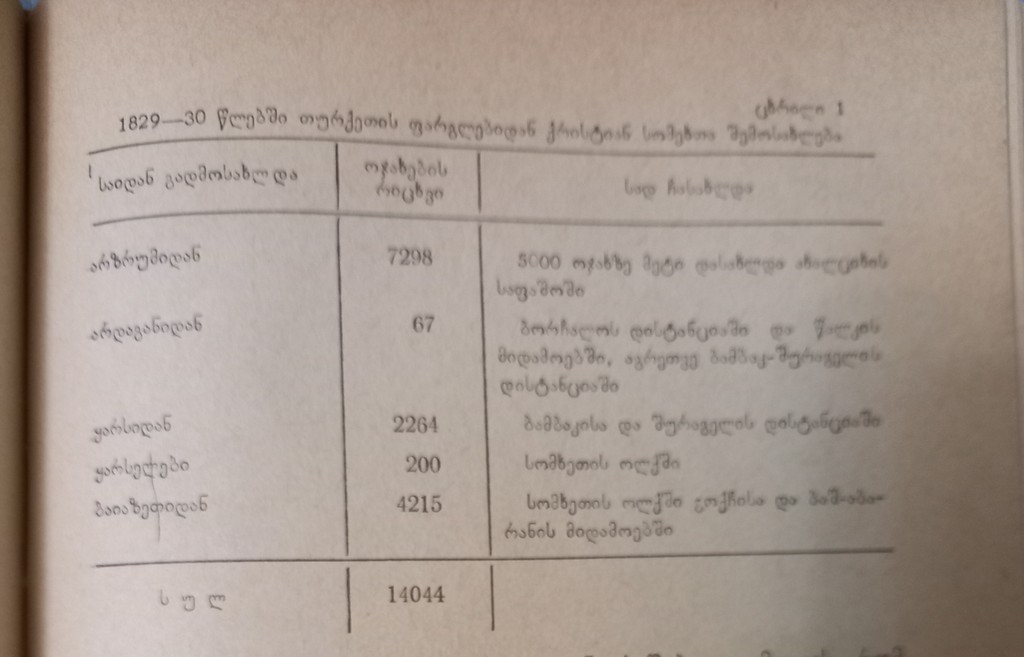 ცხრილი 1
1829—30 წლებში თურქეთის ფარგლებიდან ქრისტიან სომეხთა შემოსახლება
საიდან გადმოსახლდა
ოჯახების
რიცხვი
სად ჩასახლდა
არზრუმიდან
7298
5000 ოჯახზე მეტი დასახლდა ახალციხის
საფაშოში
არდაგანიდან
67
ბორჩალოს დისტანციაში და წალკის
მიდამოებში, აგრეთვე ბამბაკ-შურაგელის
დისტანციაში
ყარსიდან
2264
ბამბაკისა და შურაგელის დისტანციაში
ყარსელები
200
სომხეთის ოლქში
ბაიაზეთიდან
4215
სომხეთის ოლქში გოქჩისა და ბაშ-აბა-
რანის მიდამოებში
ს უ ლ
14044